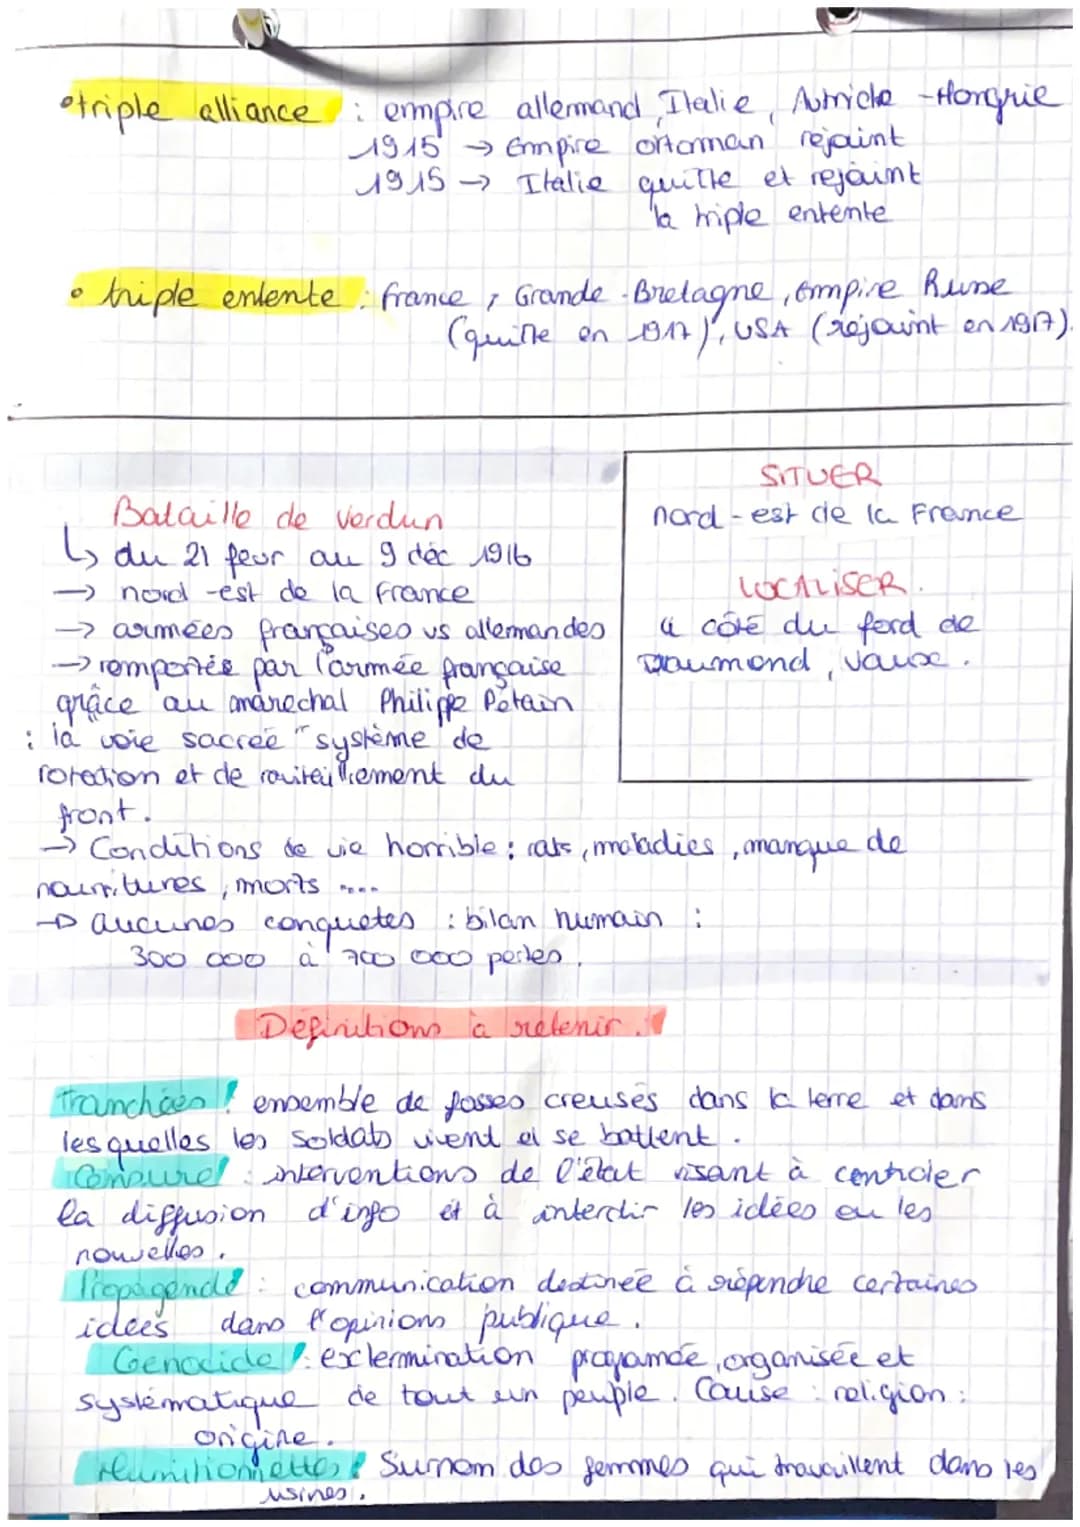 • triple alliance : empire allemand, Italie, Autriche - Hongrie
1915 → Empire ottoman rejoint
1915 → Italie quitte et rejoint
la triple entente
• triple entente : france, Grande - Bretagne, Empire Russe
(quitte en 1917), USA (rejoint en 1917).
SITUER
nord - est de la France
LOCALISER.
à côté du ford de
Doaumond, Vause.
Bataille de Verdun
↳ du 21 fevr au 9 déc 1916
→ nord - est de la france
→ armées françaises vs allemandes
→ remportée par l'armée française
grâce au maréchal Philippe Pétain
: la voie sacrée "système de
rotation et de raviteillement du
front.
→ Conditions de vie horrible : rats, maladies, manque de
nourritures, morts ....
→ aucunes conquetes : bilan humain :
300 000 à 700 000 pertes.
Définitions à retenir.
Tranchées : ensemble de fosses creusés dans la terre et dans
lesquelles les soldats vivent et se battent.
Censure : interventions de l'état visant à controler
la diffusion d'info et à interdir les idées ou les
nouvelles.
Propagande : communication destinée à répendre certaines
idées dans l'opinions publique.
Genocide : extermination programée, organisée et
systématique de tout un peuple. Cause : religion :
origine.
Munitionnettes : Surnom des femmes qui travaillent dans les
usines.